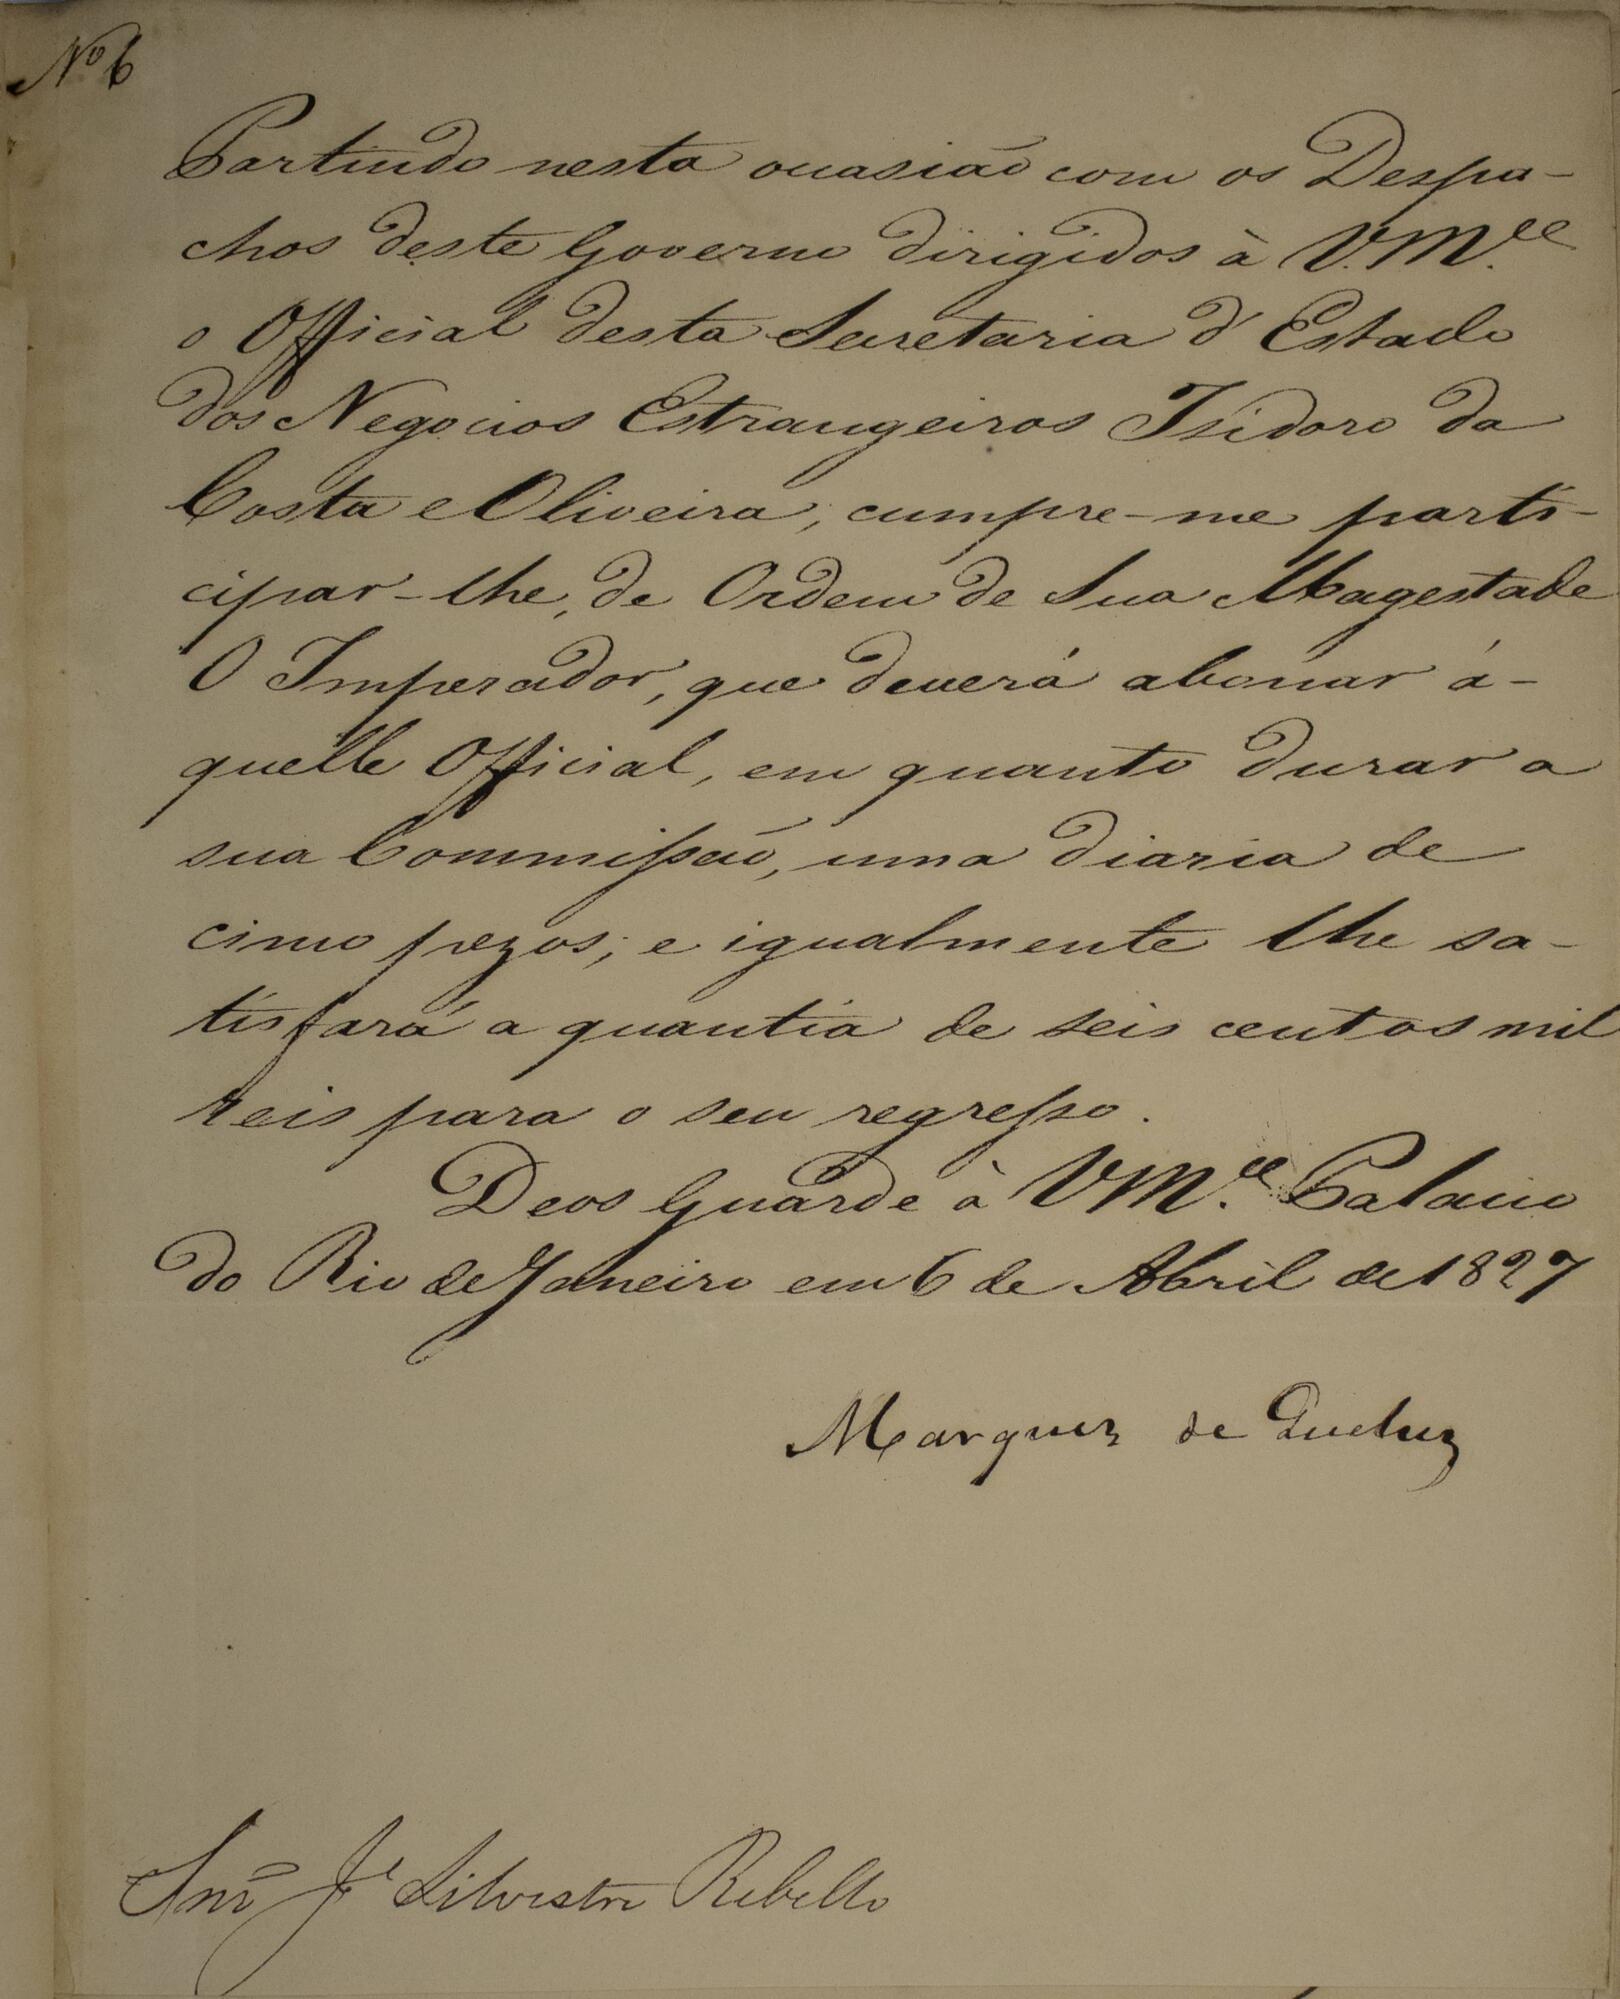 Nº 6
Partindo nesta occasião com os Despa-
chos deste Governo dirigidos à V.M.ce
o Official desta Secretaria d'Estado
dos Negocios Estrangeiros Isidoro da
Costa e Oliveira, cumpre-me parti-
cipar-lhe, de Ordem de Sua Magestade
O Imperador, que deverá abonar á-
quelle Official, em quanto durar a
sua Commissão, uma diaria de
cinco pezos; e igualmente lhe sa-
tisfará a quantia de seis centos mil
reis para o seu regresso.
Deos Guarde à VM.ce Palacio
do Rio de Janeiro em 6 de Abril de 1827
Marquez de Queluz
Snr. Je Silvestre Rebello